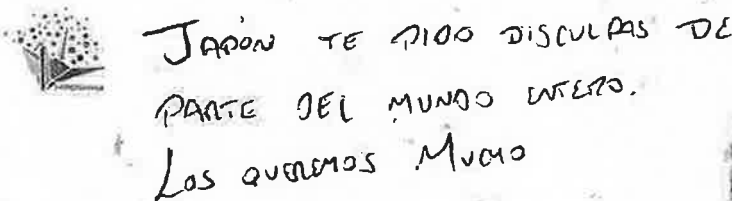 JAPÓN TE PIDO DISCULPAS DE
PARTE DEL MUNDO ENTERO.
LOS QUEREMOS MUCHO